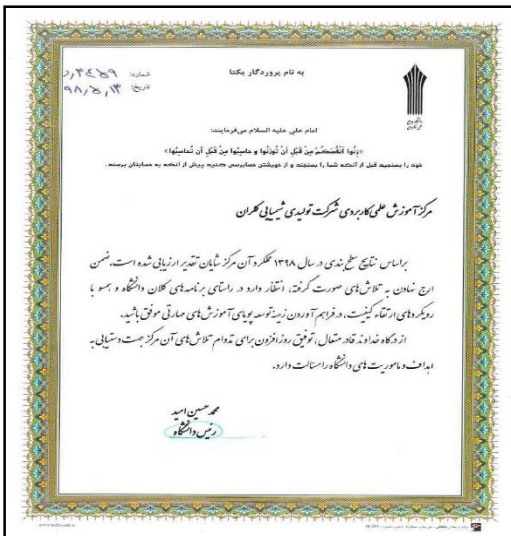 به نام پروردگار یکتا
شماره:
تاریخ: ۹۸,۵,۱۴
امام علی علیه السلام می‌فرمایند:
«زِنُوا أَنْفُسَكُمْ مِنْ قَبْلِ أَنْ تُوزَنُوا و حاسِبُوا مِنْ قَبْلِ أَن تُحاسَبُوا»
خود را بسنجید قبل از آنکه شما را بسنجند و از خویشتن حسابرسی کنید پیش از آنکه به حسابتان برسند.
مرکز آموزش علمی کاربردی شرکت تولیدی شیمیایی کلران
براساس نتایج سطح بندی در سال ۱۳۹۸ عملکرد آن مرکز شایان تقدیر ارزیابی شده است. ضمن
ارج نهادن به تلاش های صورت گرفته، انتظار دارد در راستای برنامه های کلان دانشگاه و همسو با
رویکردهای ارتقاء کیفیت، در فراهم آوردن زمینه توسعه پویای آموزش های مهارتی موفق باشید.
از درگاه خداوند قادر متعال، توفیق روزافزون برای تداوم تلاش های آن مرکز جهت دستیابی به
اهداف و ماموریت های دانشگاه را مسألت دارد.
محمد حسین امید
رئیس دانشگاه